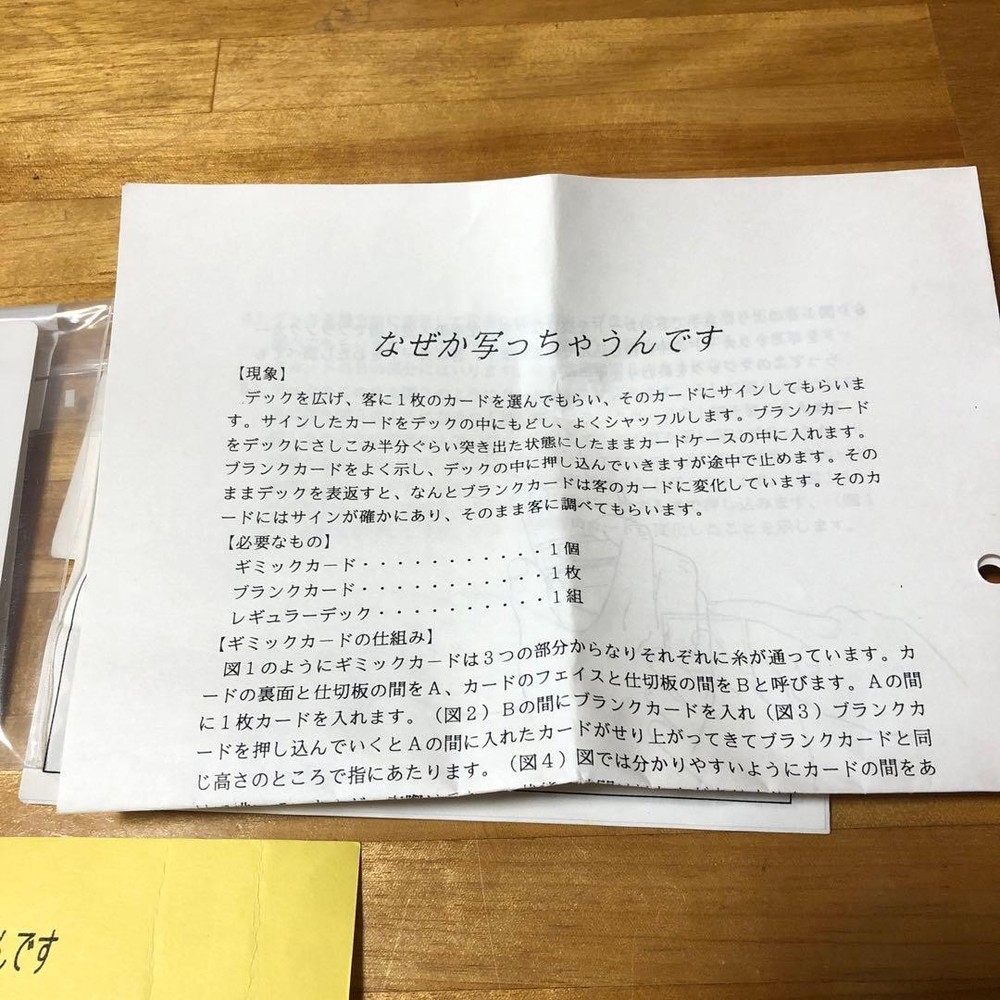 なぜか写っちゃうんです
【現象】
デックを広げ、客に1枚のカードを選んでもらい、そのカードにサインしてもらいま
す。サインしたカードをデックの中にもどし、よくシャッフルします。ブランクカード
をデックにさしこみ半分ぐらい突き出た状態にしたままカードケースの中に入れます。
ブランクカードをよく示し、デックの中に押し込んでいきますが途中で止めます。その
ままデックを表返すと、なんとブランクカードは客のカードに変化しています。そのカ
ードにはサインが確かにあり、そのまま客に調べてもらいます。
【必要なもの】
ギミックカード・・・・・・・・・・1個
ブランクカード・・・・・・・・・・1枚
レギュラーデック・・・・・・・・・1組
【ギミックカードの仕組み】
図1のようにギミックカードは3つの部分からなりそれぞれに糸が通っています。カ
ードの裏面と仕切板の間をA、カードのフェイスと仕切板の間をBと呼びます。Aの間
に1枚カードを入れます。(図2)Bの間にブランクカードを入れ(図3)ブランクカ
ードを押し込んでいくとAの間に入れたカードがせり上がってきてブランクカードと同
じ高さのところで指にあたります。(図4)図では分かりやすいようにカードの間をあ
んです